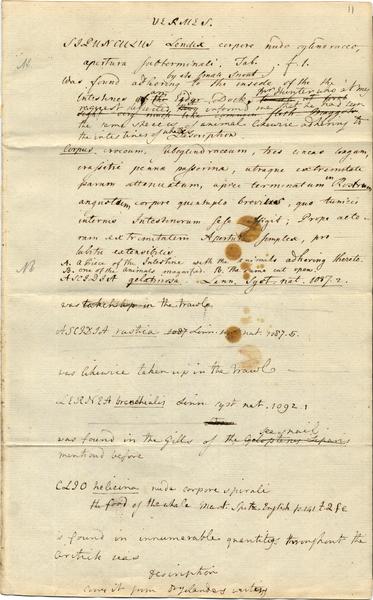 11
VERMES.
N.
SIPUNCULUS Lendix corpore nudo cylindraceo,
apertura subterminali. Tab. f. 1.
by its small snout
Was found adhering to the inside of the
Intestines of an Eider Duck, Mr Hunter, who at my
request dissected it, informed me that he had seen
the same species of animal likewise adhering to
the intestines of whales
Description
Corpus croceum, subcylindraceum, tres lineas longum,
crassitie pennæ passerinæ, utraque extremitate
parum attenuatum, apice terminatum in Rostrum
angustum, corpore quadruplo brevius, quo tunicis
internis Intestinorum sese affigit; Prope alte-
ram extremitatem Apertura simplex, pro
lubitu extensibilis
A. a Piece of the Intestine with the animals adhering thereto
B. one of the animals magnified. B. the same cut open
N
ASCIDIA gelatinosa. Linn. Syst. nat. 1087. 2.
was taken up in the trawl
ASCIDIA rustica 1087 Linn. syst nat. 1087. 5.
was likewise taken up in the trawl
LERNEA branchialis Linn. syst nat. 1092. 1
sea snail
was found in the Gills of the
mentiond before
CLIO helicina nuda corpore spirali
the food of the whale Mart. Spitz. English p. 141 t. Q f e
is found in innumerable quantities throughout the
Arctick seas
description